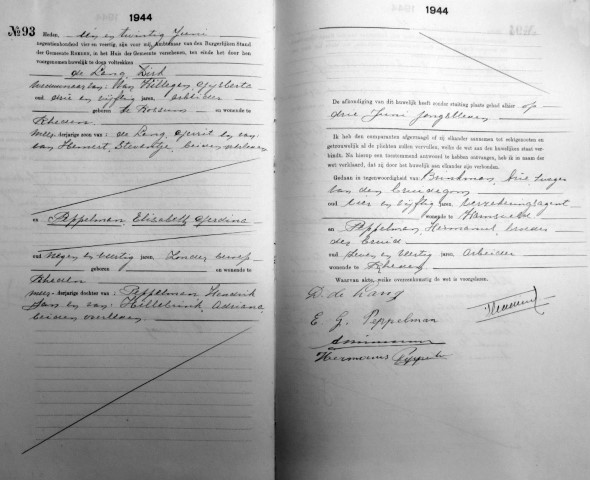 1944
№93 Heden, een en twintig Juni
negentienhonderd vier en veertig, zijn voor mij, Ambtenaar van den Burgerlijken Stand
der Gemeente RHEDEN, in het Huis der Gemeente verschenen, ten einde het door hen
voorgenomen huwelijk te doen voltrekken
de Lang, Dirk
weduwnaar van: van Gijsberta
oud drie en vijftig jaren, arbeider
geboren te Rossum en wonende te
Rheden
meer-derjarige zoon van: de Lang, Gerrit en van:
van Hemert, Steventje, beiden overleden
en Peppelman, Elisabeth Gerdina
oud negen en veertig jaren, zonder beroep
geboren en wonende te
Rheden
meer-derjarige dochter van: Peppelman, Hendrik
Jan, en van: Hillebrink, Adriana,
beiden overleden
1944
De afkondiging van dit huwelijk heeft zonder stuiting plaats gehad alhier op
drie Juni jongstleden
Ik heb den comparanten afgevraagd of zij elkander aannemen tot echtgenooten en
getrouwelijk al de plichten zullen vervullen, welke de wet aan den huwelijken staat ver-
bindt. Na hierop een toestemmend antwoord te hebben ontvangen, heb ik in naam der
wet verklaard, dat zij door het huwelijk aan elkander zijn verbonden.
Gedaan in tegenwoordigheid van Brinkman, zwager
van den bruidegom
oud vier en vijftig jaren, verzekeringsagent
wonende te
en Peppelman, Hermanus, broeder
der bruid
oud zeven en veertig jaren, arbeider
wonende te Rheden
Waarvan akte, welke overeenkomstig de wet is voorgelezen.
D. de Lang
E. G. Peppelman
Hermanus Peppelman